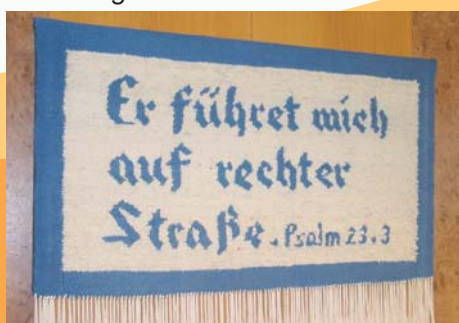 Er führet mich
auf rechter
Straße. Psalm 23.3